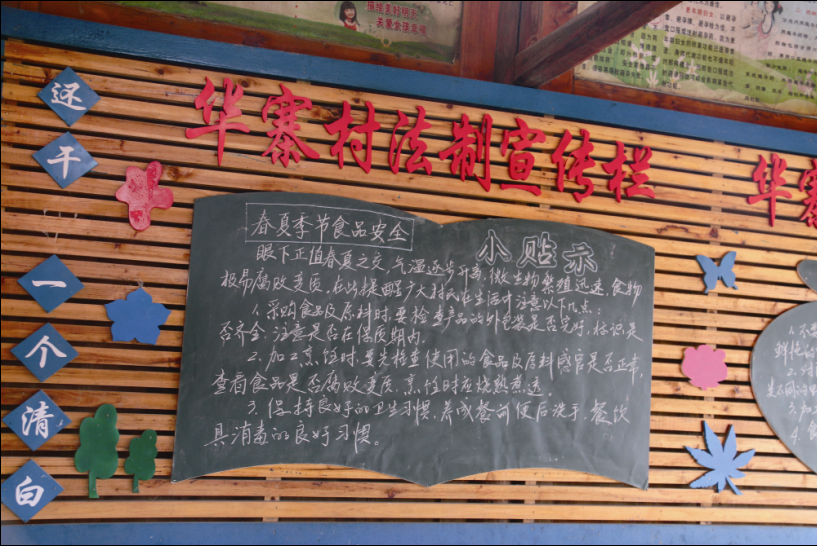 华寨村法制宣传栏
华寨
还
干
一
个
清
白
春夏季节食品安全
小贴示
眼下正值春夏之交,气温逐步升高,微生物繁殖迅速,食物
极易腐败变质,在此提醒广大村民在生活中注意以下几点:
1.采购食品及原料时,要检查产品的外包装是否完好,标识是
否齐全,注意是否在保质期内.
2.加工烹饪时,要先检查使用的食品及原料感官是否正常,
查看食品是否腐败变质,烹饪时应烧熟煮透.
3.保持良好的卫生习惯,养成餐前便后洗手,餐饮
具消毒的良好习惯。